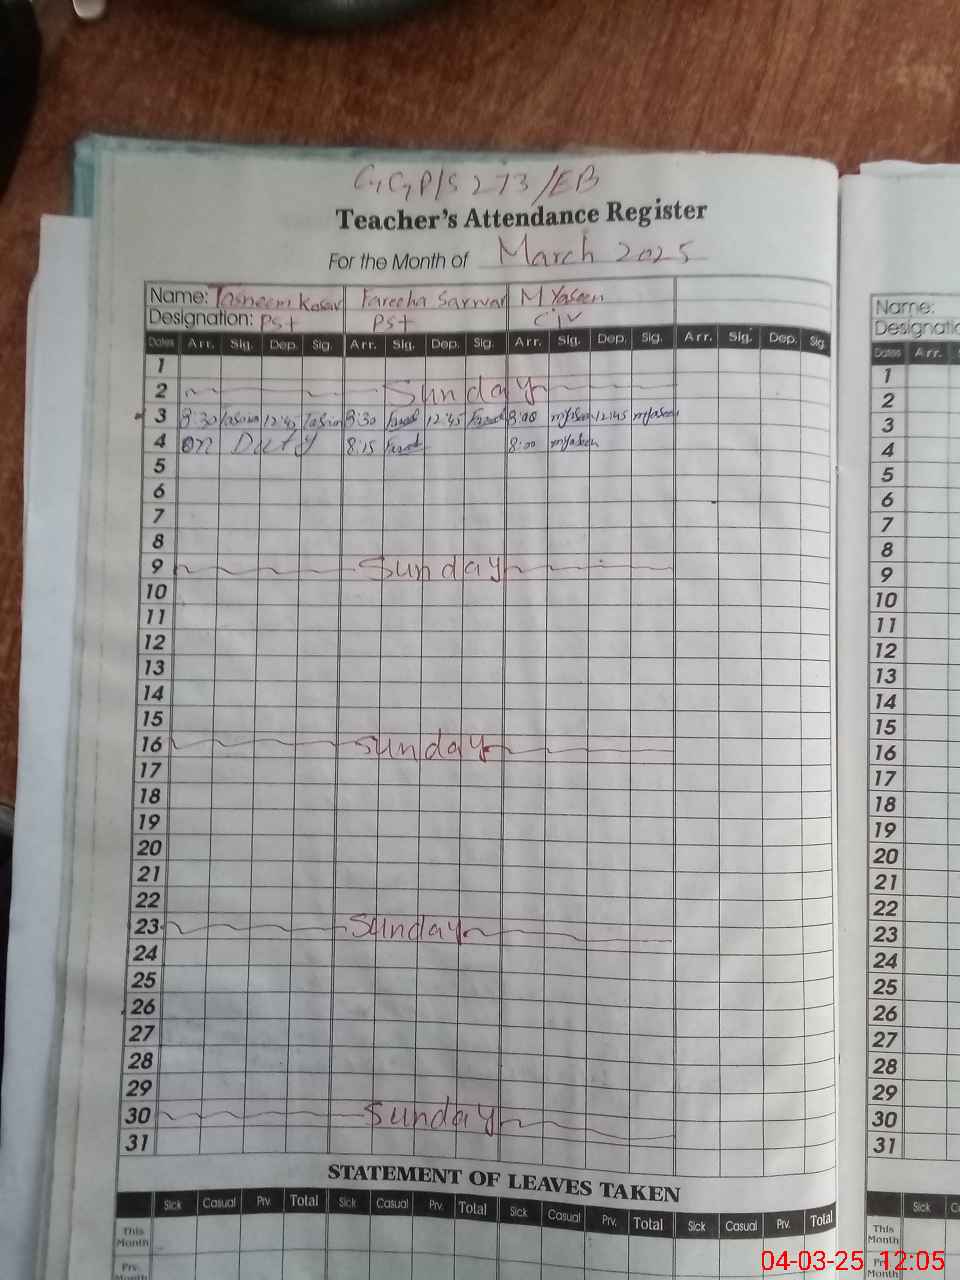 G,G,P/S 273/EB
Teacher's Attendance Register
For the Month of March 2025
Name: Tasneem Kosar Fareeha Sarwar M Yaseen
Designation: PST PST C IV
Dates Arr. Sig. Dep. Sig. Arr. Sig. Dep. Sig. Arr. Sig. Dep. Sig. Arr. Sig. Dep. Sig.
1
2 Sunday
3 8:30 12:45 8:30 12:45 8:00 myaseen 12:45 myaseen
4 on Duty 8:15 8:00 myaseen
5
6
7
8
9 Sunday
10
11
12
13
14
15
16 Sunday
17
18
19
20
21
22
23 Sunday
24
25
26
27
28
29
30 Sunday
31
STATEMENT OF LEAVES TAKEN
Sick Casual Prv. Total Sick Casual Prv. Total Sick Casual Prv. Total Sick Casual Prv. Total
This Month
Prv. Month
Name:
Dates Arr.
1
2
3
4
5
6
7
8
9
10
11
12
13
14
15
16
17
18
19
20
21
22
23
24
25
26
27
28
29
30
31
Sick
This Month
Prv.
04-03-25 12:05